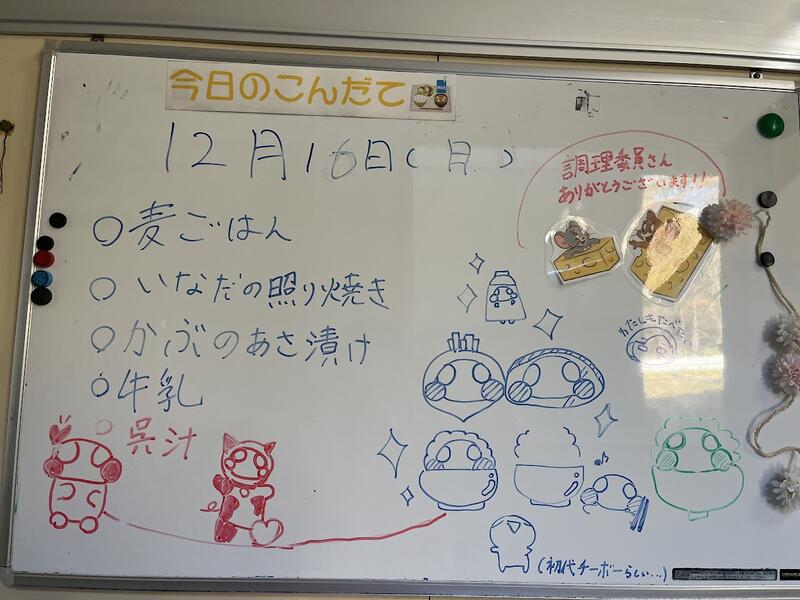 今日のこんだて
12月16日(月)
調理委員さん
ありがとうございます!!
○麦ごはん
○いなだの照り焼き
○かぶのあさ漬け
○牛乳
○呉汁
わたしもたべたい
(初代チーボーらしい…)